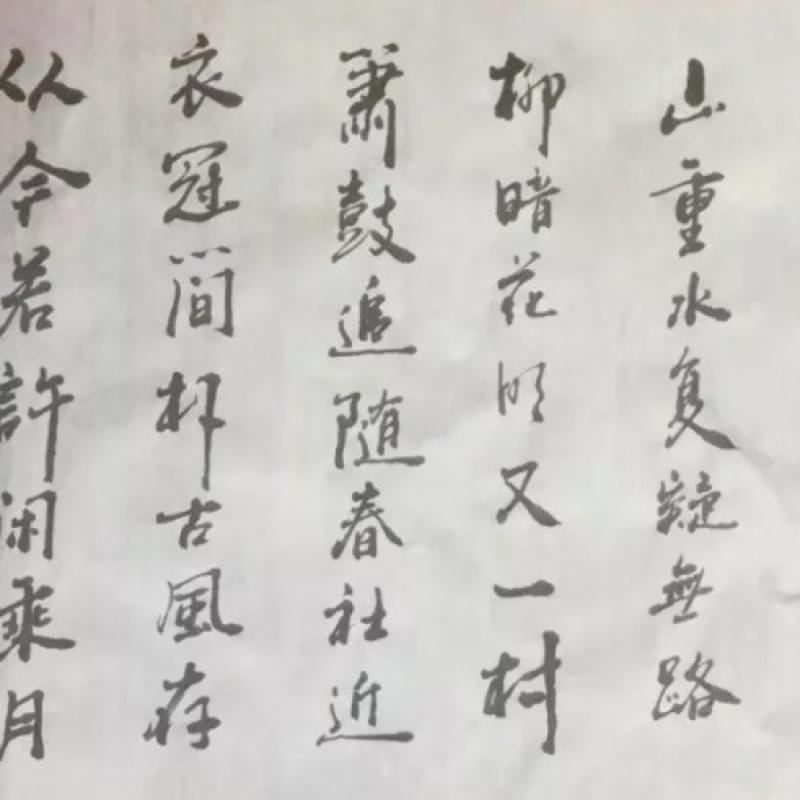 山重水复疑無路
柳暗花明又一村
簫鼓追随春社近
衣冠简朴古風存
从今若許闲乘月